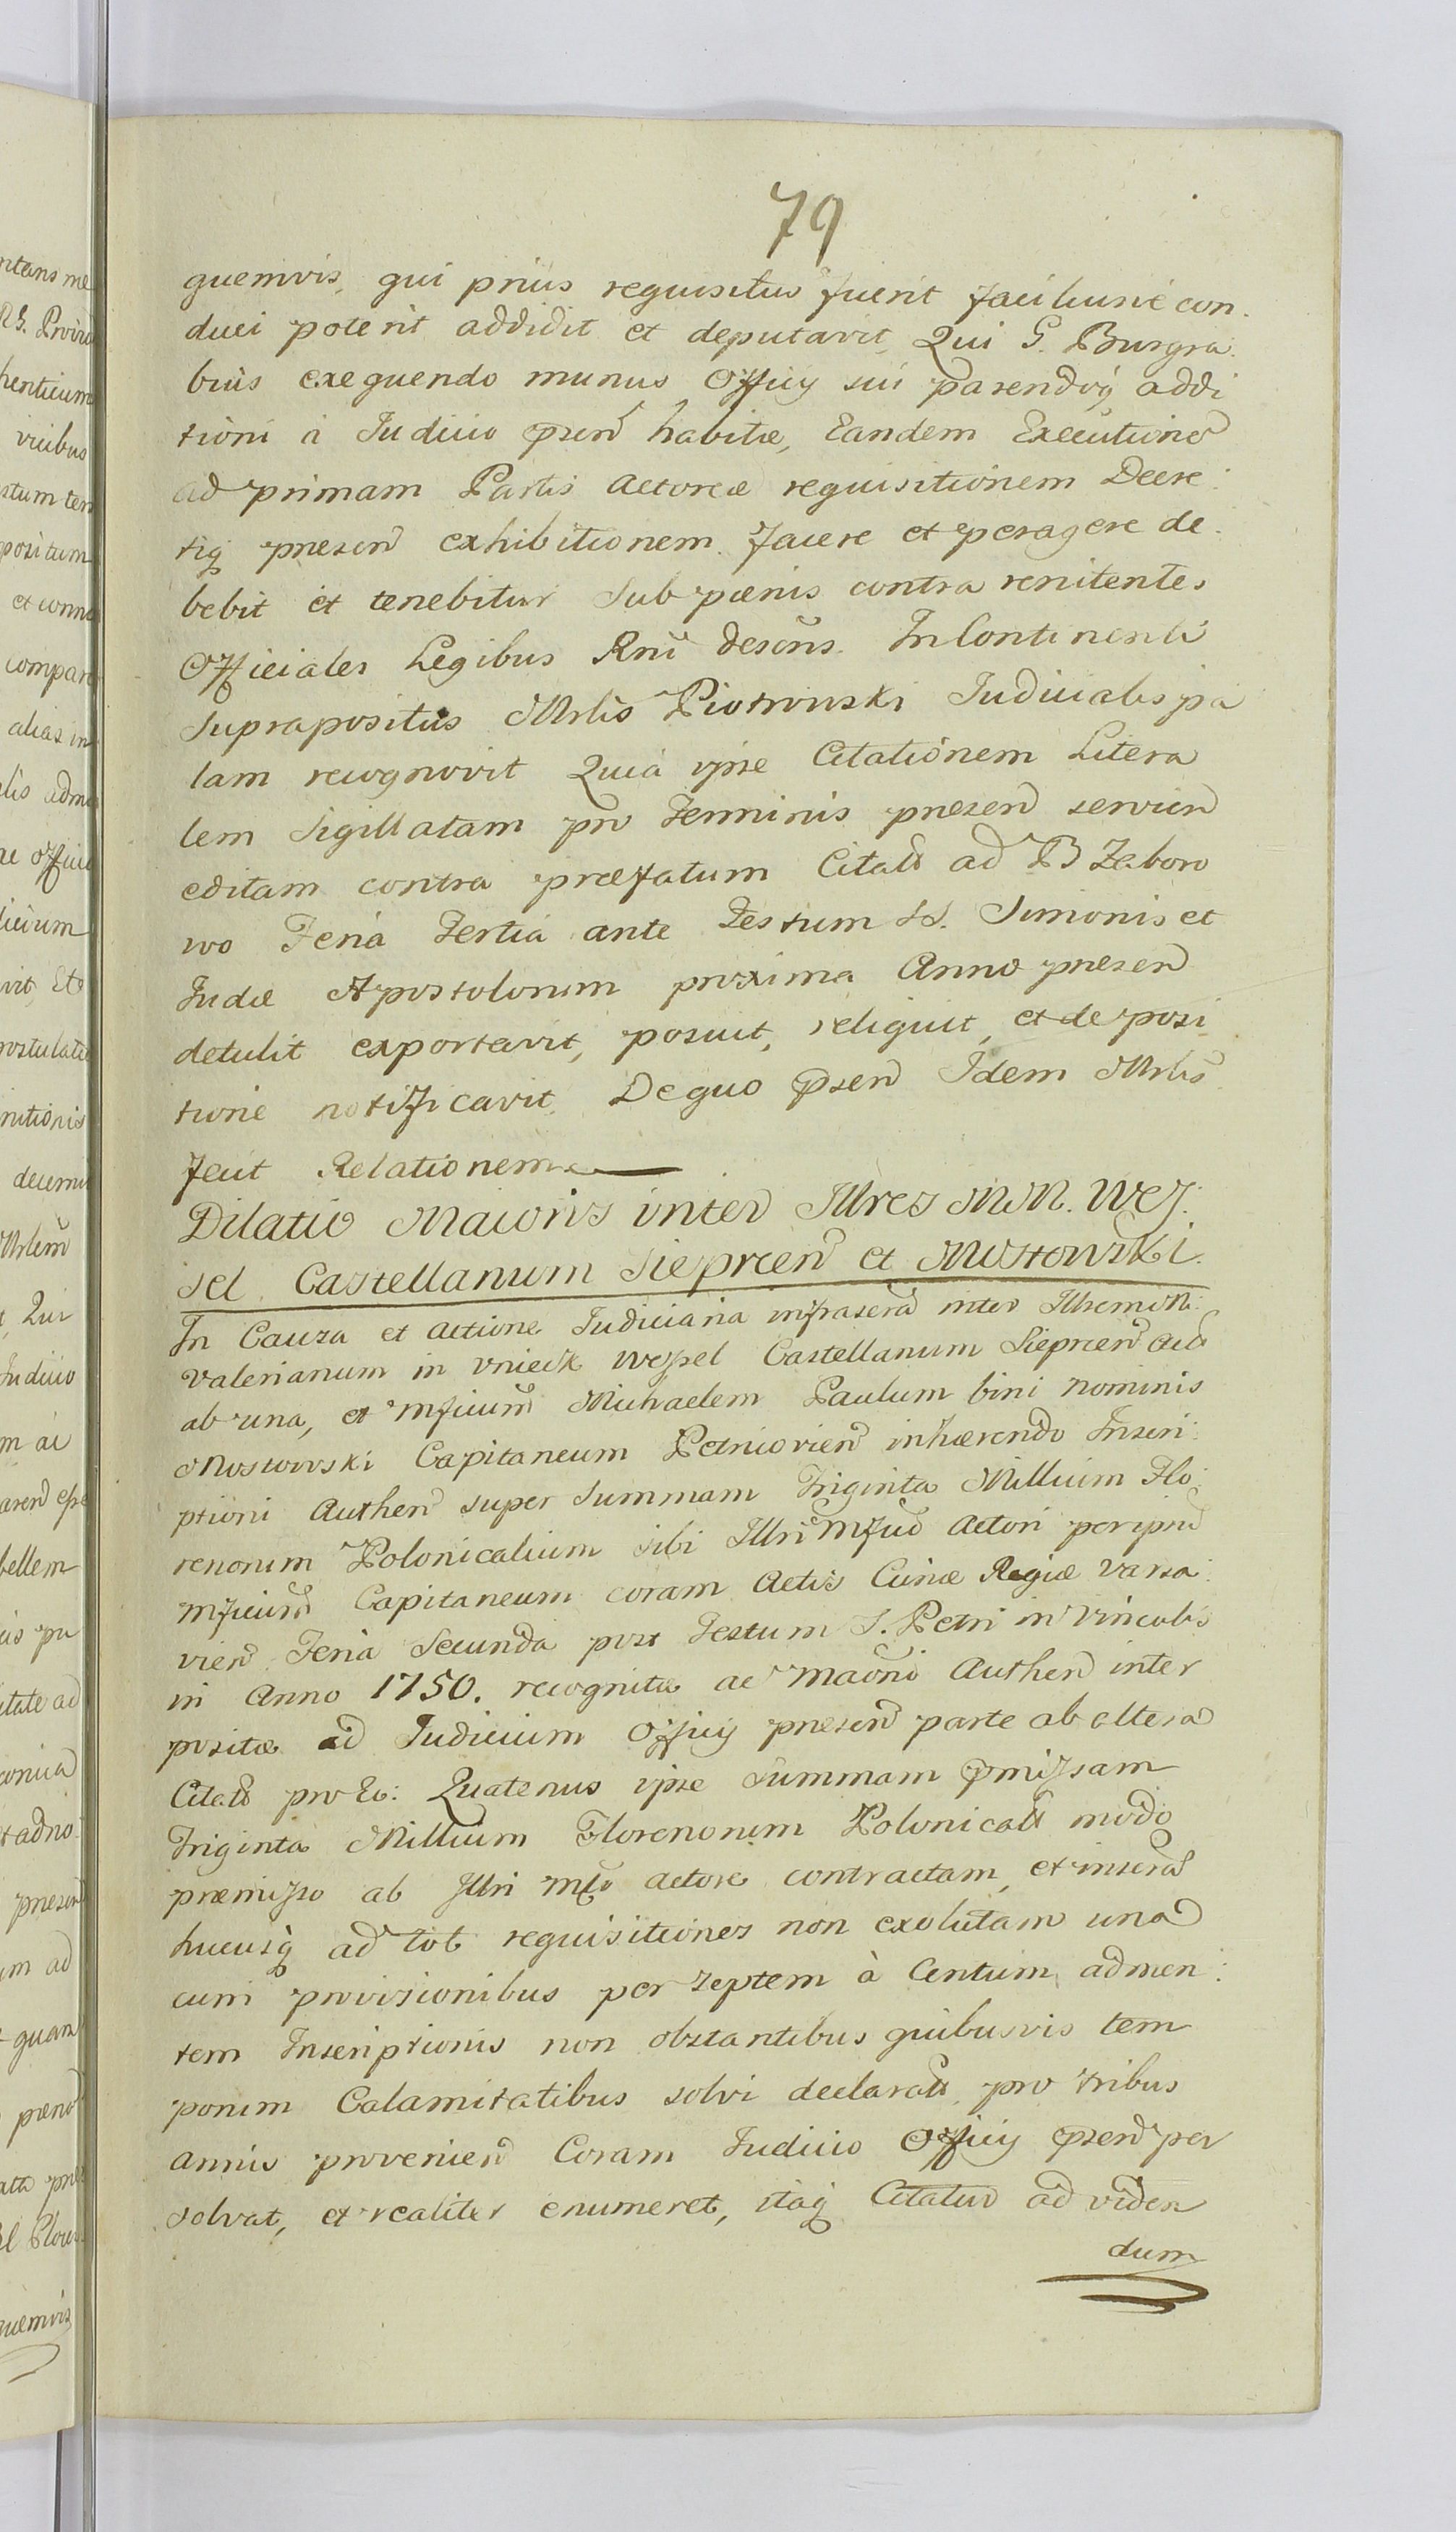 79
quemvis, qui prius requisitus fuerit faciliusve con.
duci poterit addidit et deputavit, Qui G. Burgra.
bius exequendo munus Officij sui parendoq addi
tioni a Judicio pñsen habitæ, Eandem Executionem
ad primam Partis Actoreæ requisitionem Decre:
tiq presen exhibitionem facere et peragere de:
bebit et tenebitur Sub pænis contra renitentes
Officiales Legibus Rni descris. In Continenti
Suprapositus Mrlis Piotrowski Judicialis pa
lam recognovit Quia ipse Citationem Litera
lem Sigillatam pro Terminis presen servien
editam contra præfatum Citatt ad B Zaboro
wo Feria Tertia ante Festum SS. Simonis et
Judæ Apostolorum proxima Anno presen
detulit exportavit, posuit, reliquit, et de posi
tione notificavit, De quo pñsen Idem Mrlis
fecit Relationem
Dilatio Maioris inter Illres MM. Wes:
sel Castellanum Sieprcen et Mostowski.
In Causa et Actione Judiciaria infrascra inter Illrem M:
Valerianum in Unieck Wessel Castellanum Sieprcen Act
ab una, et Mficum Michaelem Paulum bini nominis
Mostowski Capitaneum Petriovien inhærendo Inscri:
ptioni Authen super Summam Triginta Millium Flo:
renorum Polonicalium sibi Illri Mfco Actori per ipsum
Mficum Capitaneum coram Actis Curiæ Regiæ Varsa:
vien Feria Secunda post Festum S. Petri in Vinculis
in Anno 1750. recognitæ ac Maoni Authen inter
positæ ad Judicium Officij presen parte ab altera
Citatt pro Eo: Quatenus ipse Summam pmissam
Triginta Millium Florenorum Polonicatt modo
præmisso ab Illri Mfco Actore contractam, et inscra
hucusq ad tot requisitiones non exolutam una
cum provisionibus per Septem à Centum, ad men:
tem Inscriptionis non obstantibus quibusvis tem
porum Calamitatibus solvi declaratt, pro tribus
annis provenien Coram Judicio Officij pñsen per
solvat, et realiter enumeret, itaq Citatur ad viden
dum